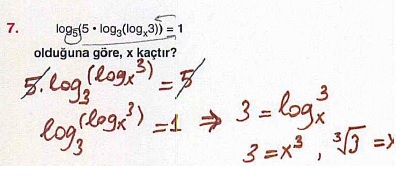 7. log₅(5 · log₃(logₓ3)) = 1
olduğuna göre, x kaçtır?
5 · log₃(logₓ3) = 5
log₃(logₓ3) = 1 ⇒ 3 = logₓ3
3 = x³ , ³√3 = x